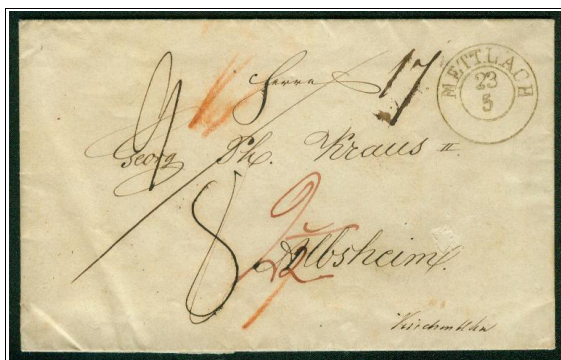 METTLACH
23
5
Herrn
17
Georg Ph. Kraus II.
8
Albsheim.